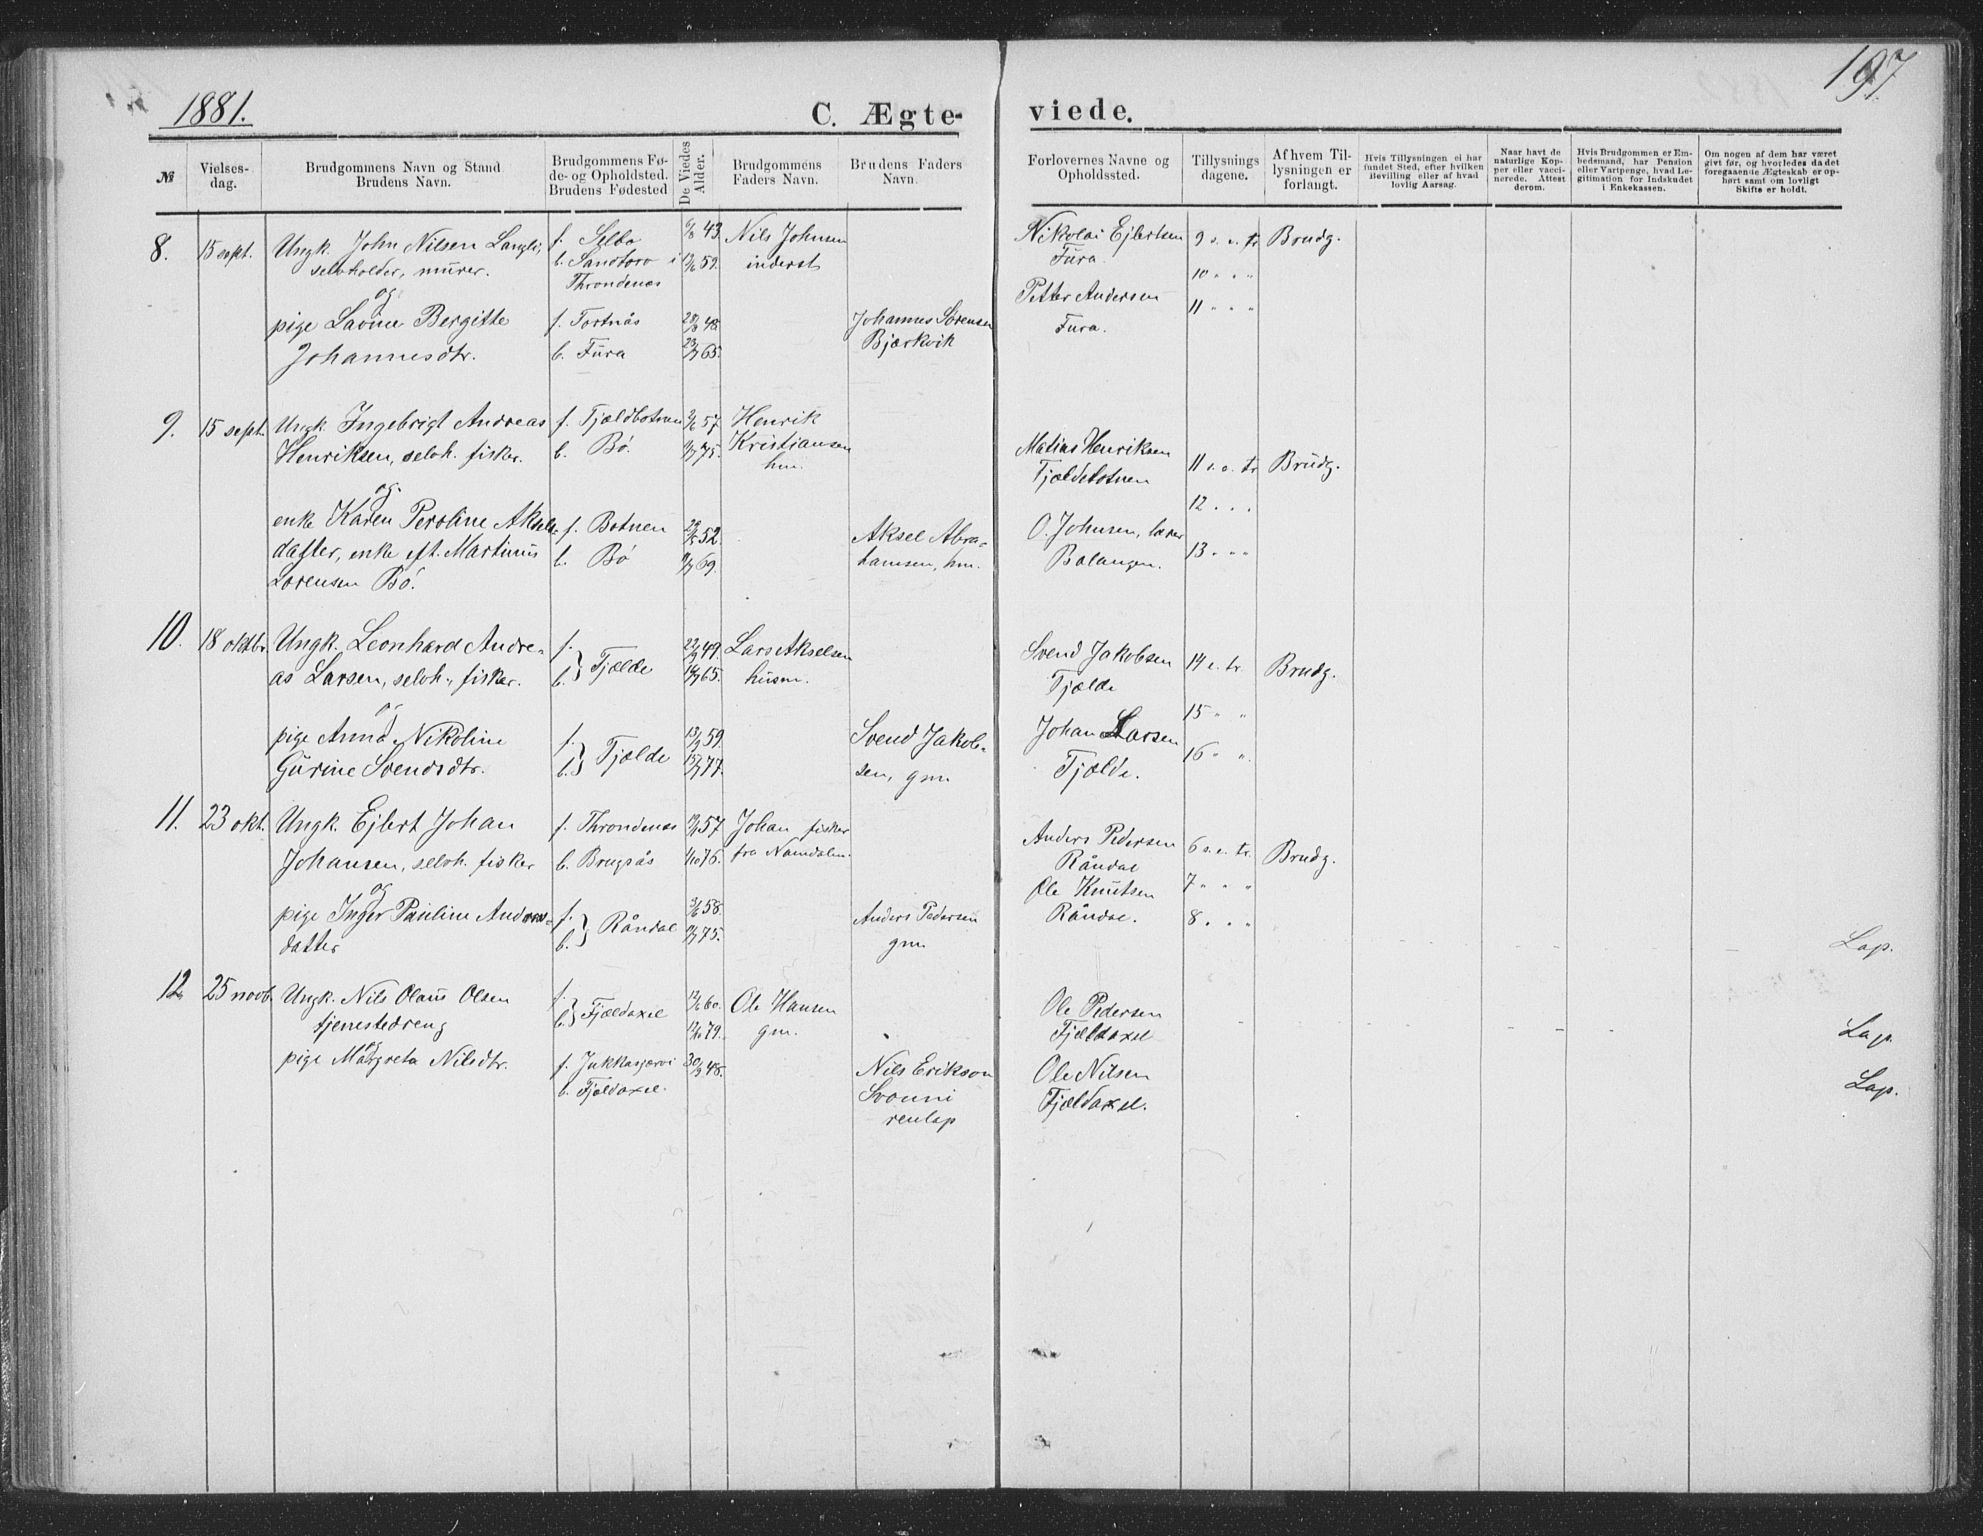 197
1881.
C. Ægte-
viede.
№
Vielses-
dag.
Brudgommens Navn og Stand
Brudens Navn.
Brudgommens Fø-
de- og Opholdsted.
Brudens Fødested
De Viedes
Alder.
Brudgommens
Faders Navn.
Brudens Faders
Navn.
Forlovernes Navne og
Opholdssted.
Tillysnings
dagene.
Af hvem Til-
lysningen er
forlangt.
Hvis Tillysningen ei har
fundet Sted, efter hvilken
Bevilling eller af hvad
lovlig Aarsag.
Naar havt de
naturlige Kop-
per eller vacci-
nerede. Attest
derom.
Hvis Brudgommen er Em-
bedsmand, har Pension
eller Vartpenge, hvad Le-
gitimation for Indskudet
i Enkekassen.
Om nogen af dem har været
givt før, og hvorledes da det
foregaaende Ægteskab er op-
hørt samt om lovligt
Skifte er holdt.
8.
15 sept.
Ungk. John Nilsen Langli,
selvholder, murer.
og
pige Lavine Bergitte
Johannesdtr.
f. Selbo
b. Sandtorv i
Throndenes
f. Tortnås
b. Fura
43.
59.
48.
65.
Nils Johnsen
inderst
Johannes Sørensen
Bjærkvik
Nikolai Ejlertsen
Fura
Petter Andersen
Fura.
9 s. e. tr
10 " " "
11 " " "
Brudg.
9.
15 sept.
Ungk. Ingebrigt Andreas
Henriksen, selvh. fisker.
og
enke Karen Peroline Aksels-
datter, enke eft. Martinus
Lorensen Bø.
f. Tjældbotnen
b. Bø.
f. Botnen
b. Bø
57.
75.
52.
69.
Henrik
Kristiansen
hm.
Aksel Abra-
hamsen, hm.
Matias Henriksen
Tjældebotnen
O. Johnsen, lærer
Balangen.
11 s. e. tr
12 " " "
13 " " "
Brudg.
10.
18 oktbr.
Ungk. Leonhard Andre-
as Larsen, selvh., fisker.
og
pige Anna Nikoline
Gurine Svendsdtr.
f.
b. } Tjælde
f.
b. } Tjælde
22/9 49.
65.
59.
77.
Lars Akselsen
husm.
Svend Jakob-
sen, gm.
Svend Jakobsen
Tjælde
Johan Larsen
Tjælde.
14 e. tr.
15 " "
16 " "
Brudg.
11.
23 okt.
Ungk. Ejlert Johan
Johansen, selvh. fisker
og
pige Inger Pauline Anders-
datter
f. Throndenes
b. Brugsås
f.
b. } Råndal
57
76.
58.
75.
Johan fisker
fra Namdalen.
Anders Pedersen
gm.
Anders Pedersen
Råndal
Ole Knutsen
Råndal.
6 s. e. tr.
7 " " "
8 " " "
Brudg.
Lap.
12
25 novb.
Ungk. Nils Olaus Olsen
tjenestedreng
og
pige Margreta Nilsdtr.
f.
b. } Fjældaxel
f. Jukkasjærvi
b. Fjældaxel.
60.
79.
48.
Ole Hansen
gm.
Nils Erikson
Svonni
renlap
Ole Pedersen
Fjældaxel
Ole Nilsen
Fjældaxel.
Lap.
Lap.